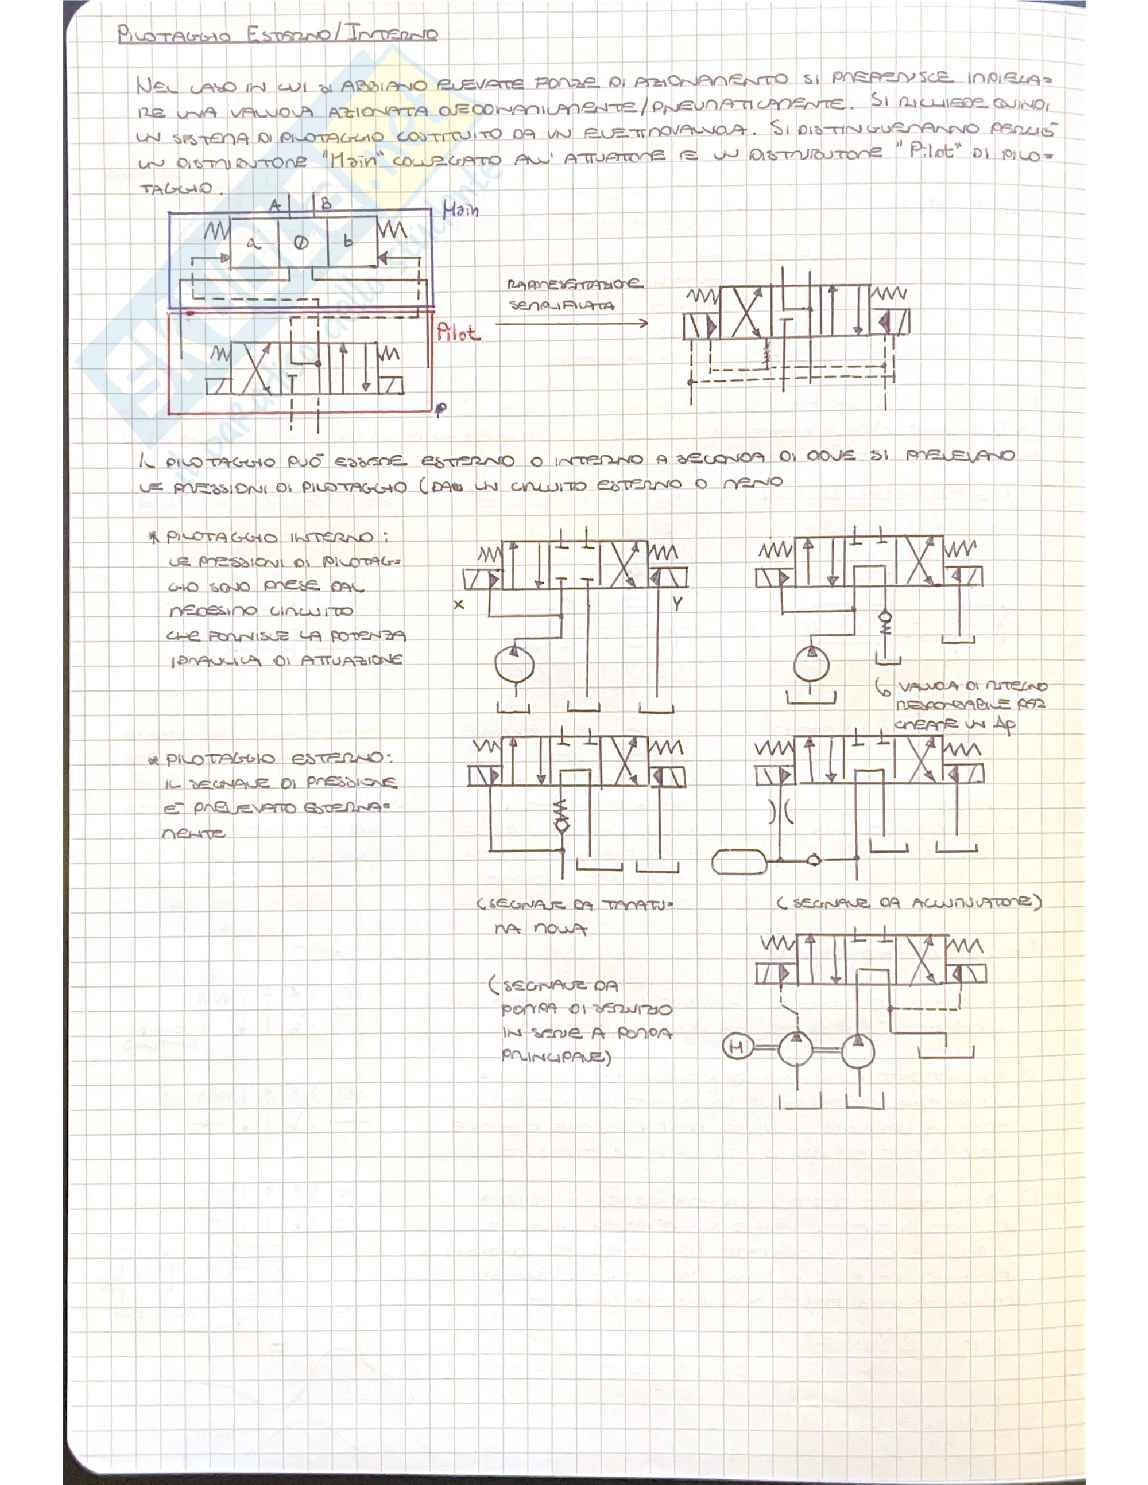 PILOTAGGIO ESTERNO/INTERNO
NEL CASO IN CUI SI ABBIANO ELEVATE FORZE DI AZIONAMENTO SI PREFERISCE IMPIEGA-
RE UNA VALVOLA AZIONATA OLEODINAMICAMENTE/PNEUMATICAMENTE. SI RICHIEDE QUINDI
UN SISTEMA DI PILOTAGGIO COSTITUITO DA UN ELETTROVALVOLA. SI DISTINGUERANNO PERCIÒ
UN DISTRIBUTORE "Main" COLLEGATO ALL'ATTUATORE E UN DISTRIBUTORE "Pilot" DI PILO-
TAGGIO.
A B
Main
a 0 b
RAPPRESENTAZIONE
SEMPLIFICATA
Pilot
P
IL PILOTAGGIO PUÒ ESSERE ESTERNO O INTERNO A SECONDA DI DOVE SI PRELEVANO
LE PRESSIONI DI PILOTAGGIO (DA UN CIRCUITO ESTERNO O MENO
* PILOTAGGIO INTERNO:
LE PRESSIONI DI PILOTAG-
GIO SONO PRESE DAL
MEDESIMO CIRCUITO
CHE FORNISCE LA POTENZA
IDRAULICA DI ATTUAZIONE
X
Y
VALVOLA DI RITEGNO
RESPONSABILE PER
CREARE UN Δp
* PILOTAGGIO ESTERNO:
IL SEGNALE DI PRESSIONE
È PRELEVATO ESTERNA-
MENTE
(SEGNALE DA TARATU-
RA MOLLA
(SEGNALE DA ACCUMULATORE)
(SEGNALE DA
POMPA DI SERVIZIO
IN SERIE A POMPA
PRINCIPALE)
M